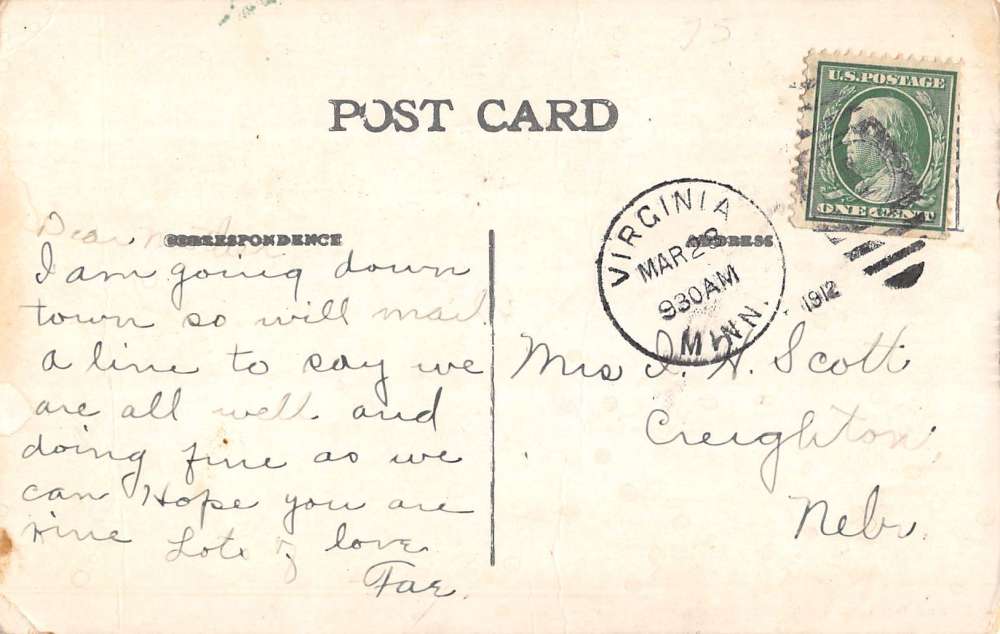 75
POST CARD
U.S. POSTAGE
ONE CENT
VIRGINIA
MAR 28
930AM
MINN.
1912
CORRESPONDENCE
ADDRESS
Dear
I am going down
town so will mail
a line to say we
are all well and
doing fine as we
can Hope you are
fine Lots of love
Fae.
Mrs I. N. Scott
Creighton
Nebr.